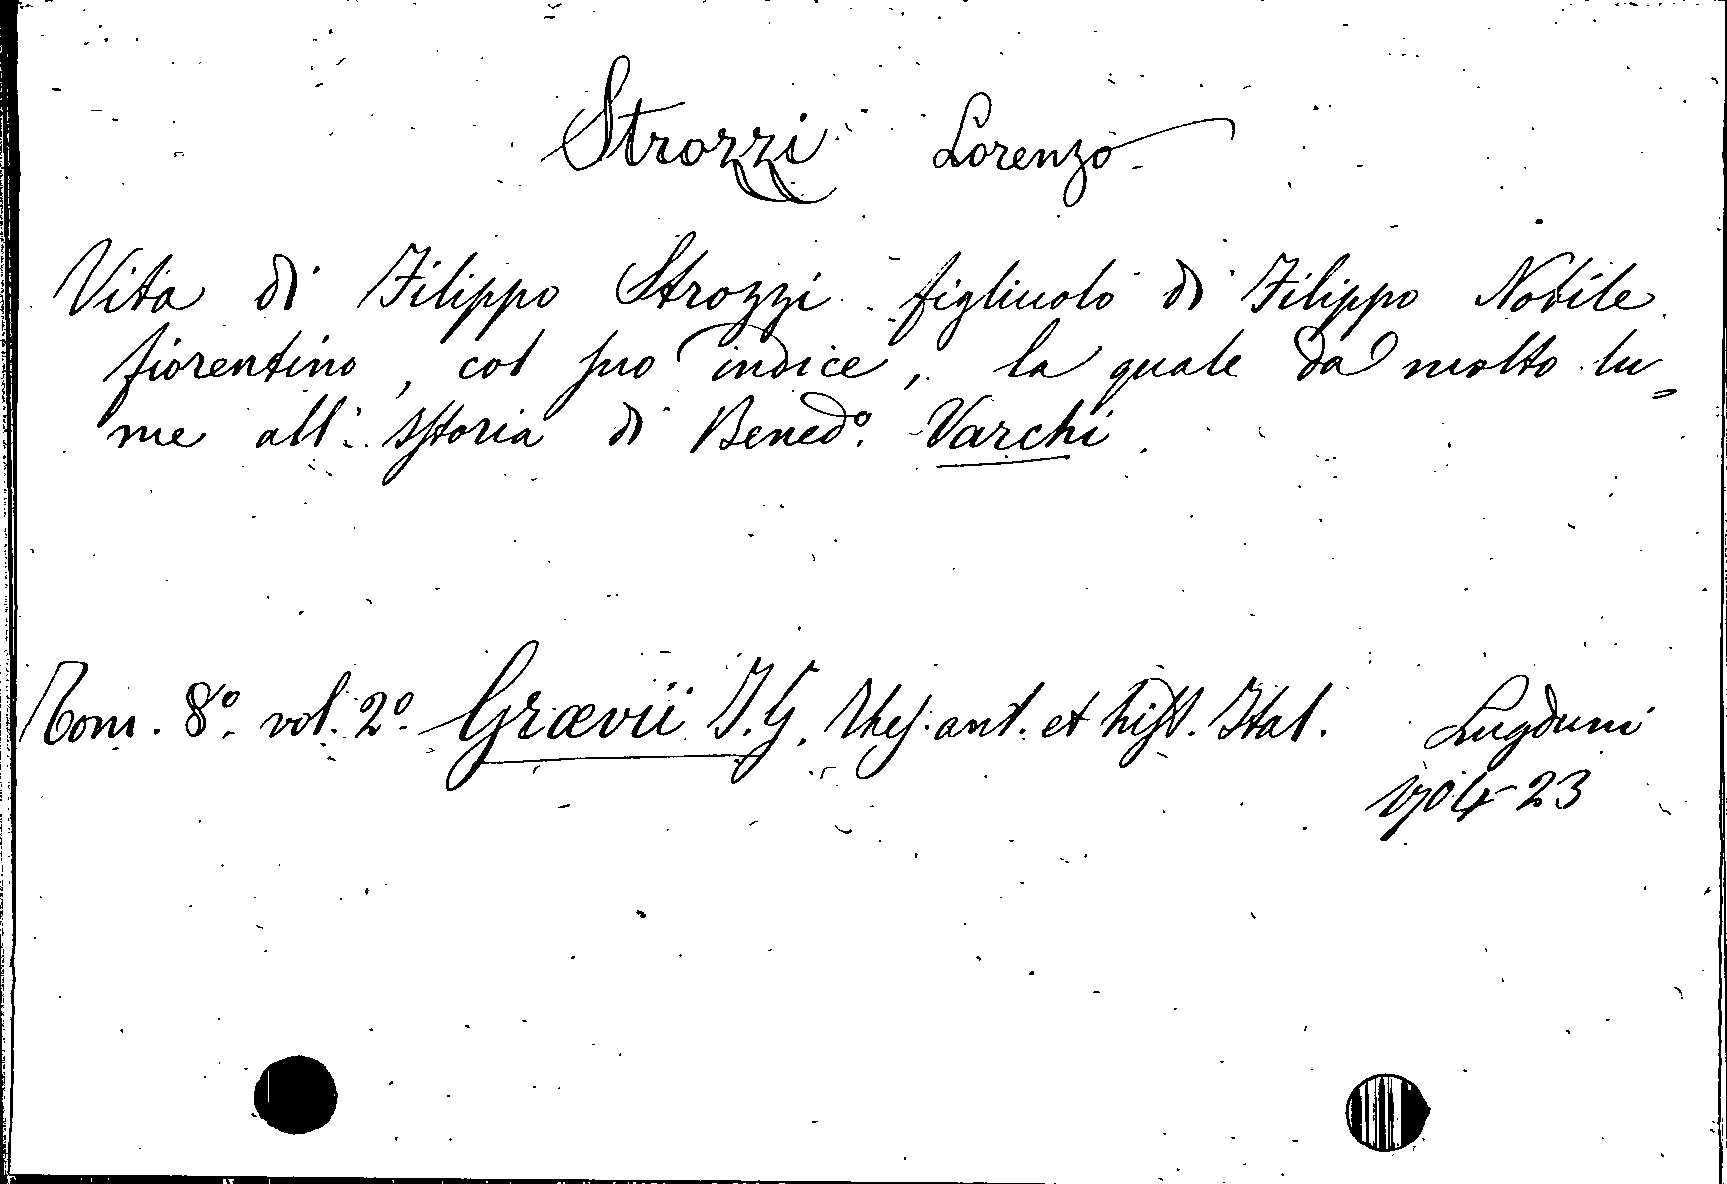 Strozzi Lorenzo
Vita di Filippo Strozzi figliuolo di Filippo Nobile
fiorentino, col suo indice, la quale da molto lu=
me all' Istoria di Bened.º Varchi.
Tom. 8º. vol. 2º. Grævii J. G. Thes. ant. et hist. Ital. Lugduni
1704-23